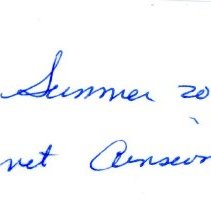 Summer 20
net Ainswor